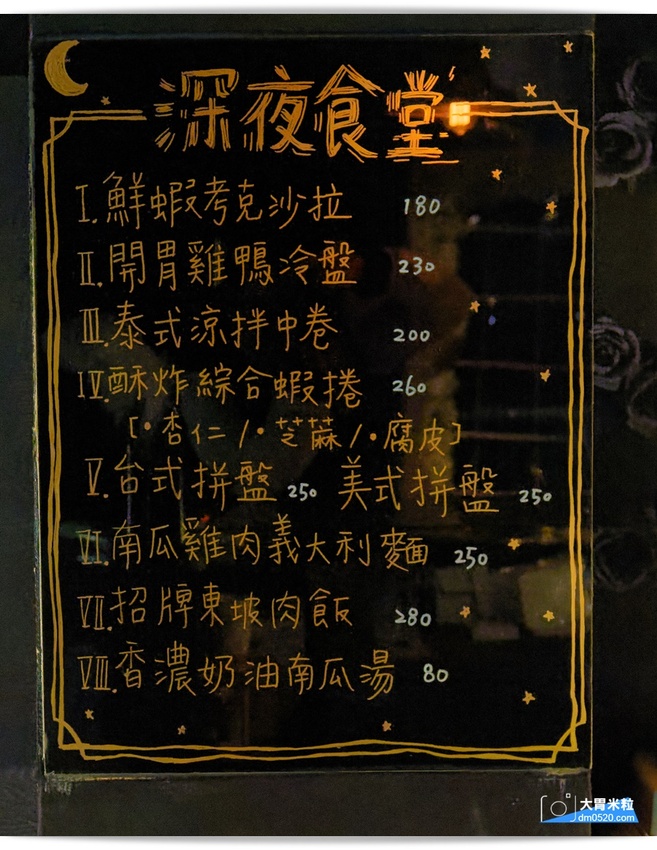 深夜食堂
I.鮮蝦考克沙拉 180
II.開胃雞鴨冷盤 230
III.泰式涼拌中卷 200
IV.酥炸綜合蝦捲 260
[•杏仁/•芝蔴/•腐皮]
V.台式拼盤 250 美式拼盤 250
VI.南瓜雞肉義大利麵 250
VII.招牌東坡肉飯 280
VIII.香濃奶油南瓜湯 80
大胃米粒
dm0520.com